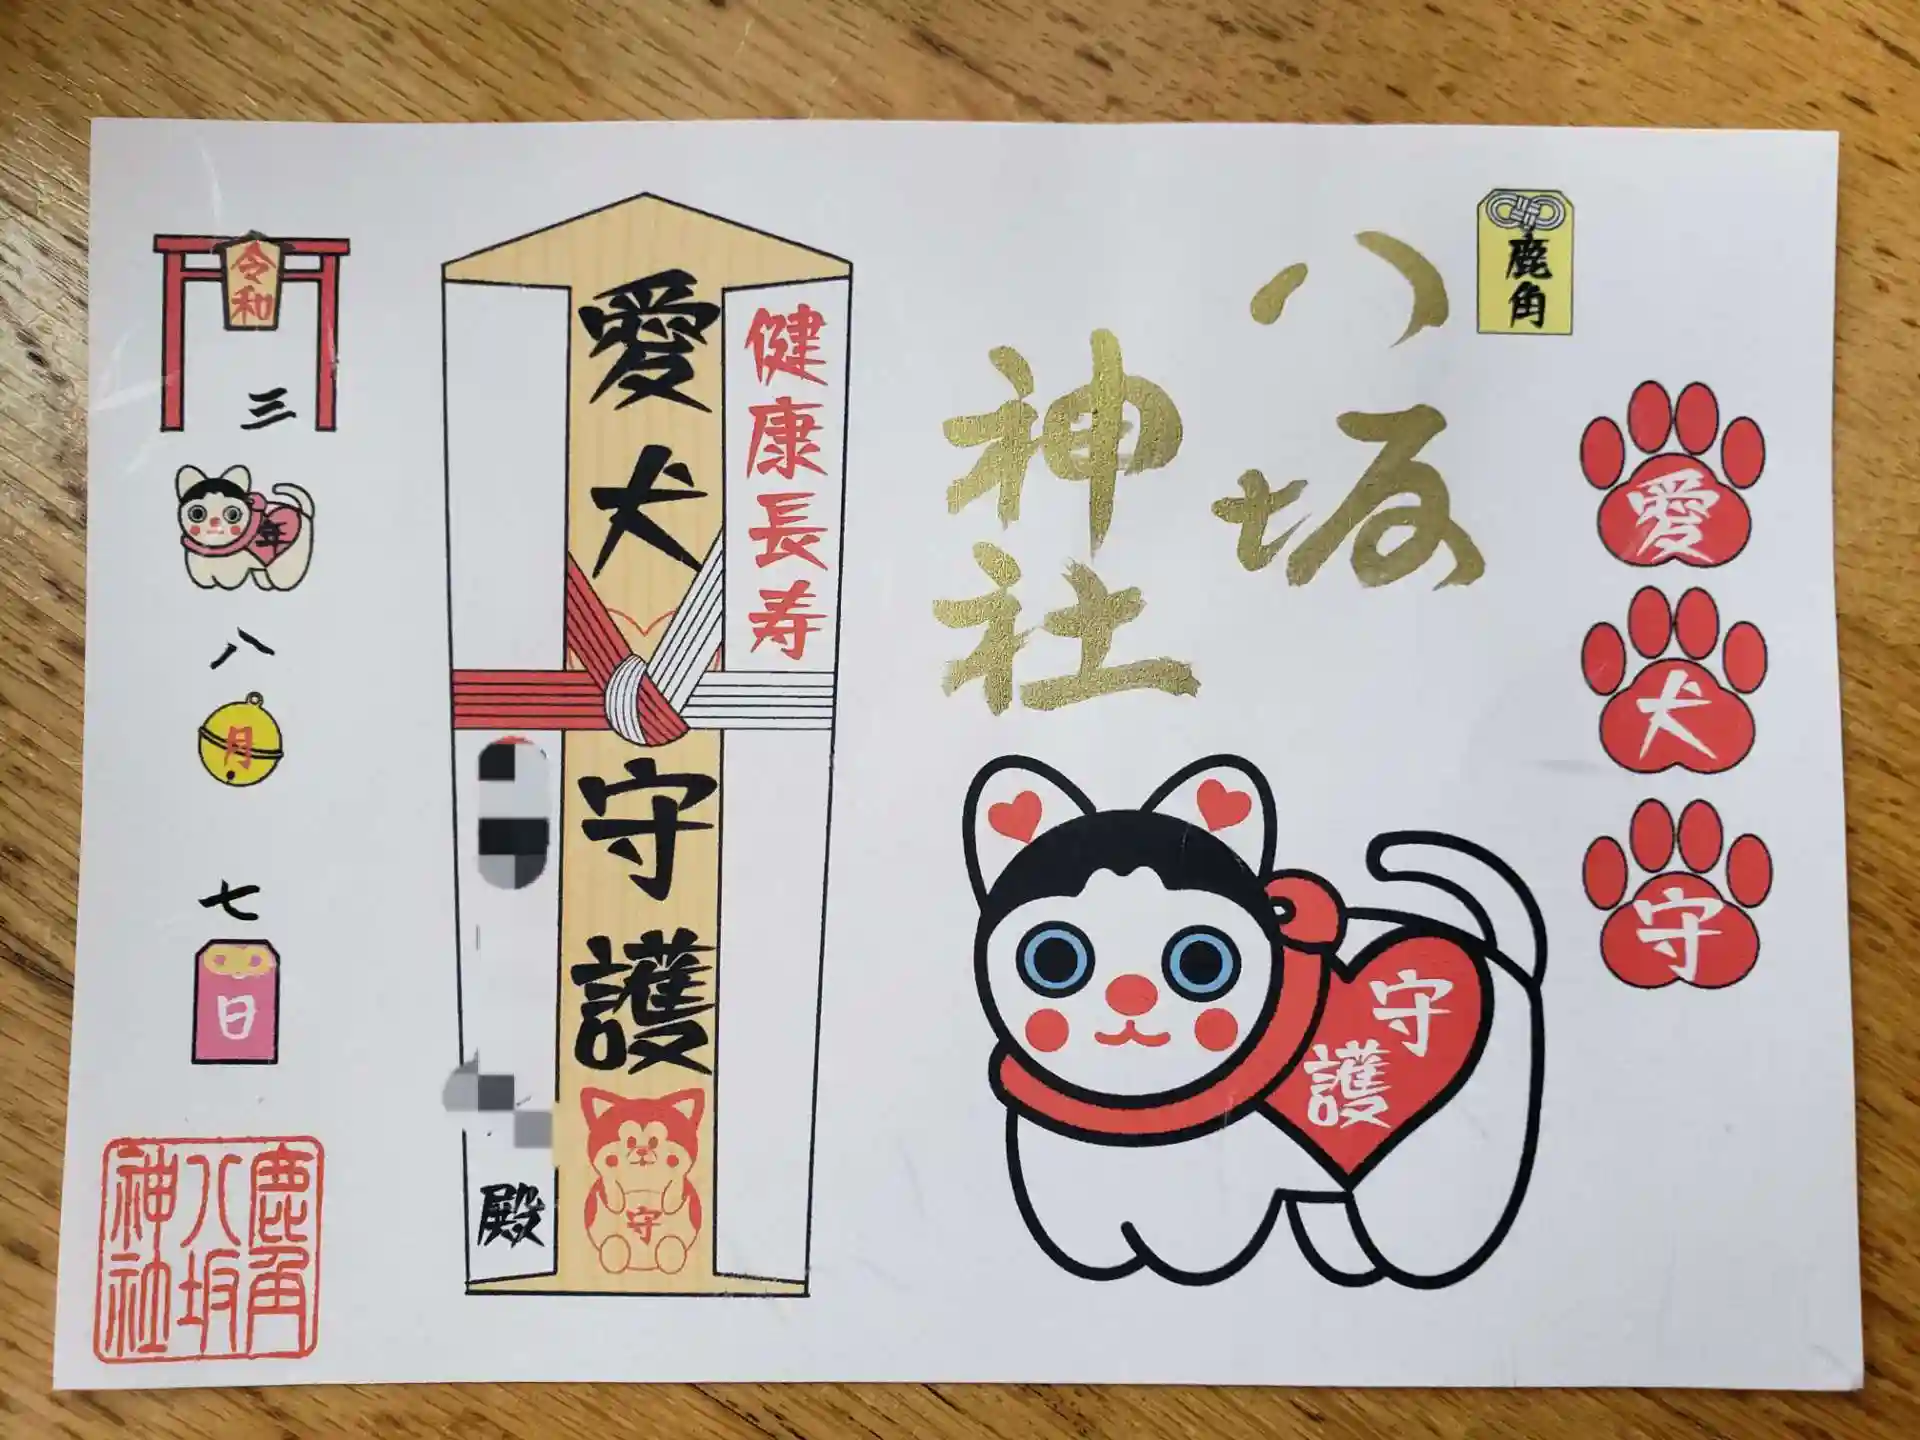 鹿角
八坂
神社
愛
犬
守
守
護
健康長寿
愛犬守護
守
殿
令和
三
年
八
月
七
日
鹿角
八坂
神社